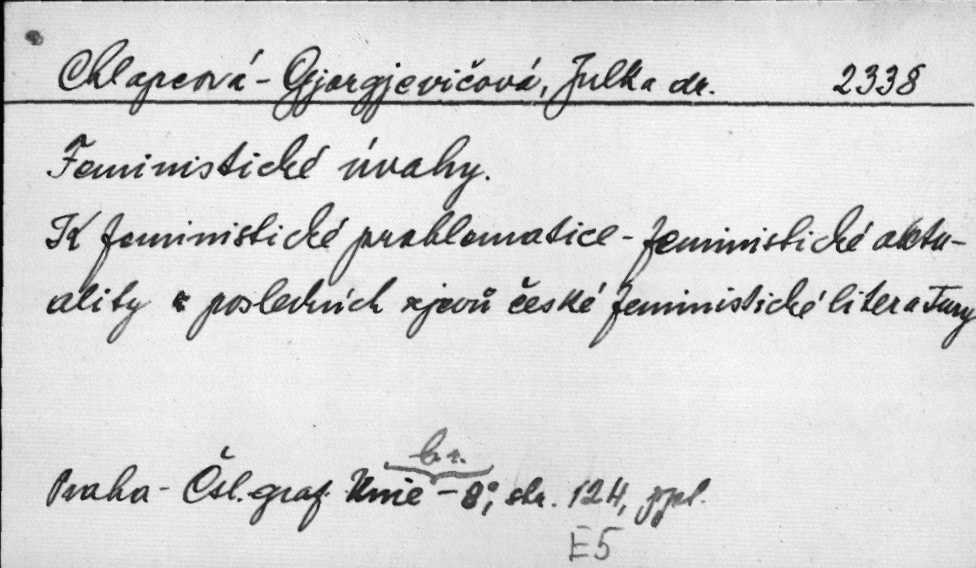 Chlapcová-Gjorgjevičová, Julka dr. 2338
Feministické úvahy.
K feministické problematice - feministické aktu-
ality z posledních zjevů české feministické literatury
b.r.
Praha - Čsl. graf. Unie - 8°, str. 124, ppl.
E5